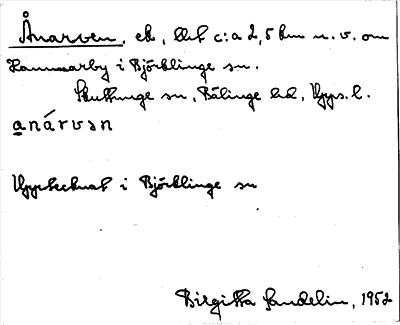 Ånarven, ek, litet c:a 2,5 km n.v. om
Hammarby i Björklinge sn.
Skuttunge sn, Bälinge hd, Upps. l.
anárvən
Upptecknat i Björklinge sn
Birgitta Sundelin, 1952